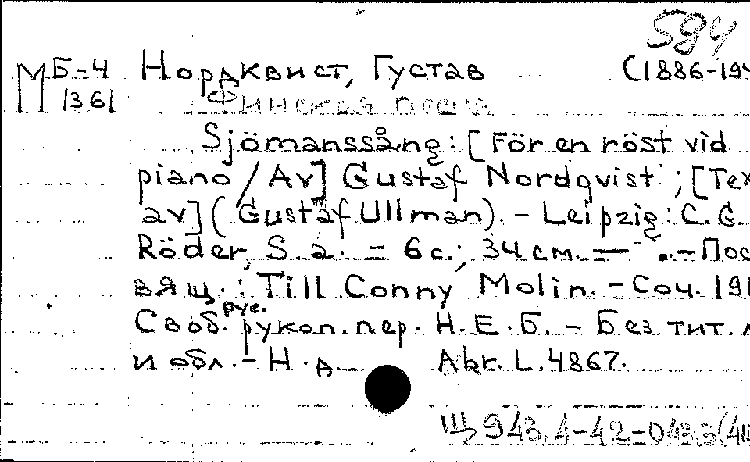 584
М Б-4 Нордквист, Густав (1886-19
1361 Финская песня
Sjömanssång: [För en röst vid
piano / Av] Gustaf Nordqvist ; [Tex
av] (Gustaf Ullman). - Leipzig: C.G.
Röder, S. a. - 6 с.; 34 см. — . - Пос
вящ.: Till Conny Molin. - Соч. 191
Своб. рус. рукоп. пер. Н.Е.Б. - Без тит. л
и обл. - Н. д. Abr. L. 4867.
Щ 943.4-42=0433(4Ш